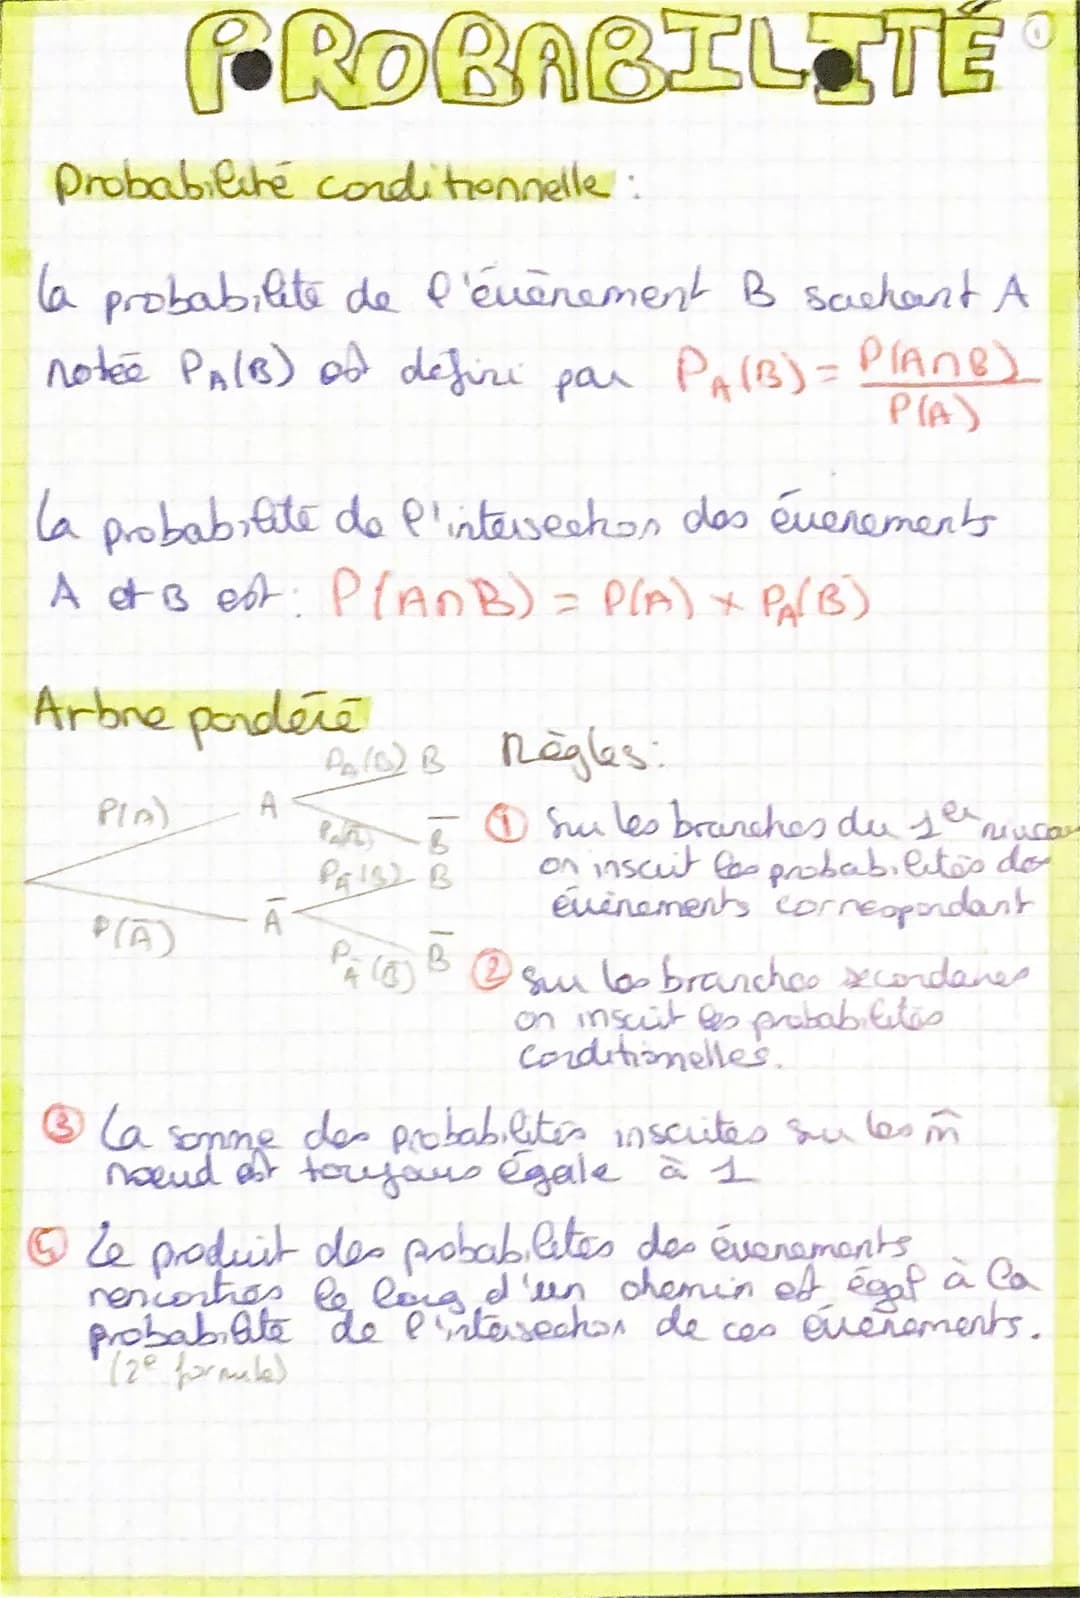 PROBABILITÉ
1
Probabilité conditionnelle :
La probabilité de l'évènement B sachant A
notée PA(B) est défini par PA(B) = P(A∩B)
P(A)
La probabilité de l'intersection des évenements
A et B est : P(A∩B) = P(A) × PA(B)
Arbre pondéré
Règles :
P(A) A PA(B) B
PA(B̄) B̄
P(Ā) Ā PĀ(B) B
PĀ(B̄) B̄
① Sur les branches du 1er niveau
on inscrit les probabilités des
évènements correspondant
② Sur les branches secondaires
on inscrit les probabilités
conditionnelles.
③ La somme des probabilités inscrites sur les m̂
nœud est toujours égale à 1
Le produit des probabilités des évenements
rencontrés le long d'un chemin est égal à la
probabilité de l'intersection de ces évènements.
(2e formule)